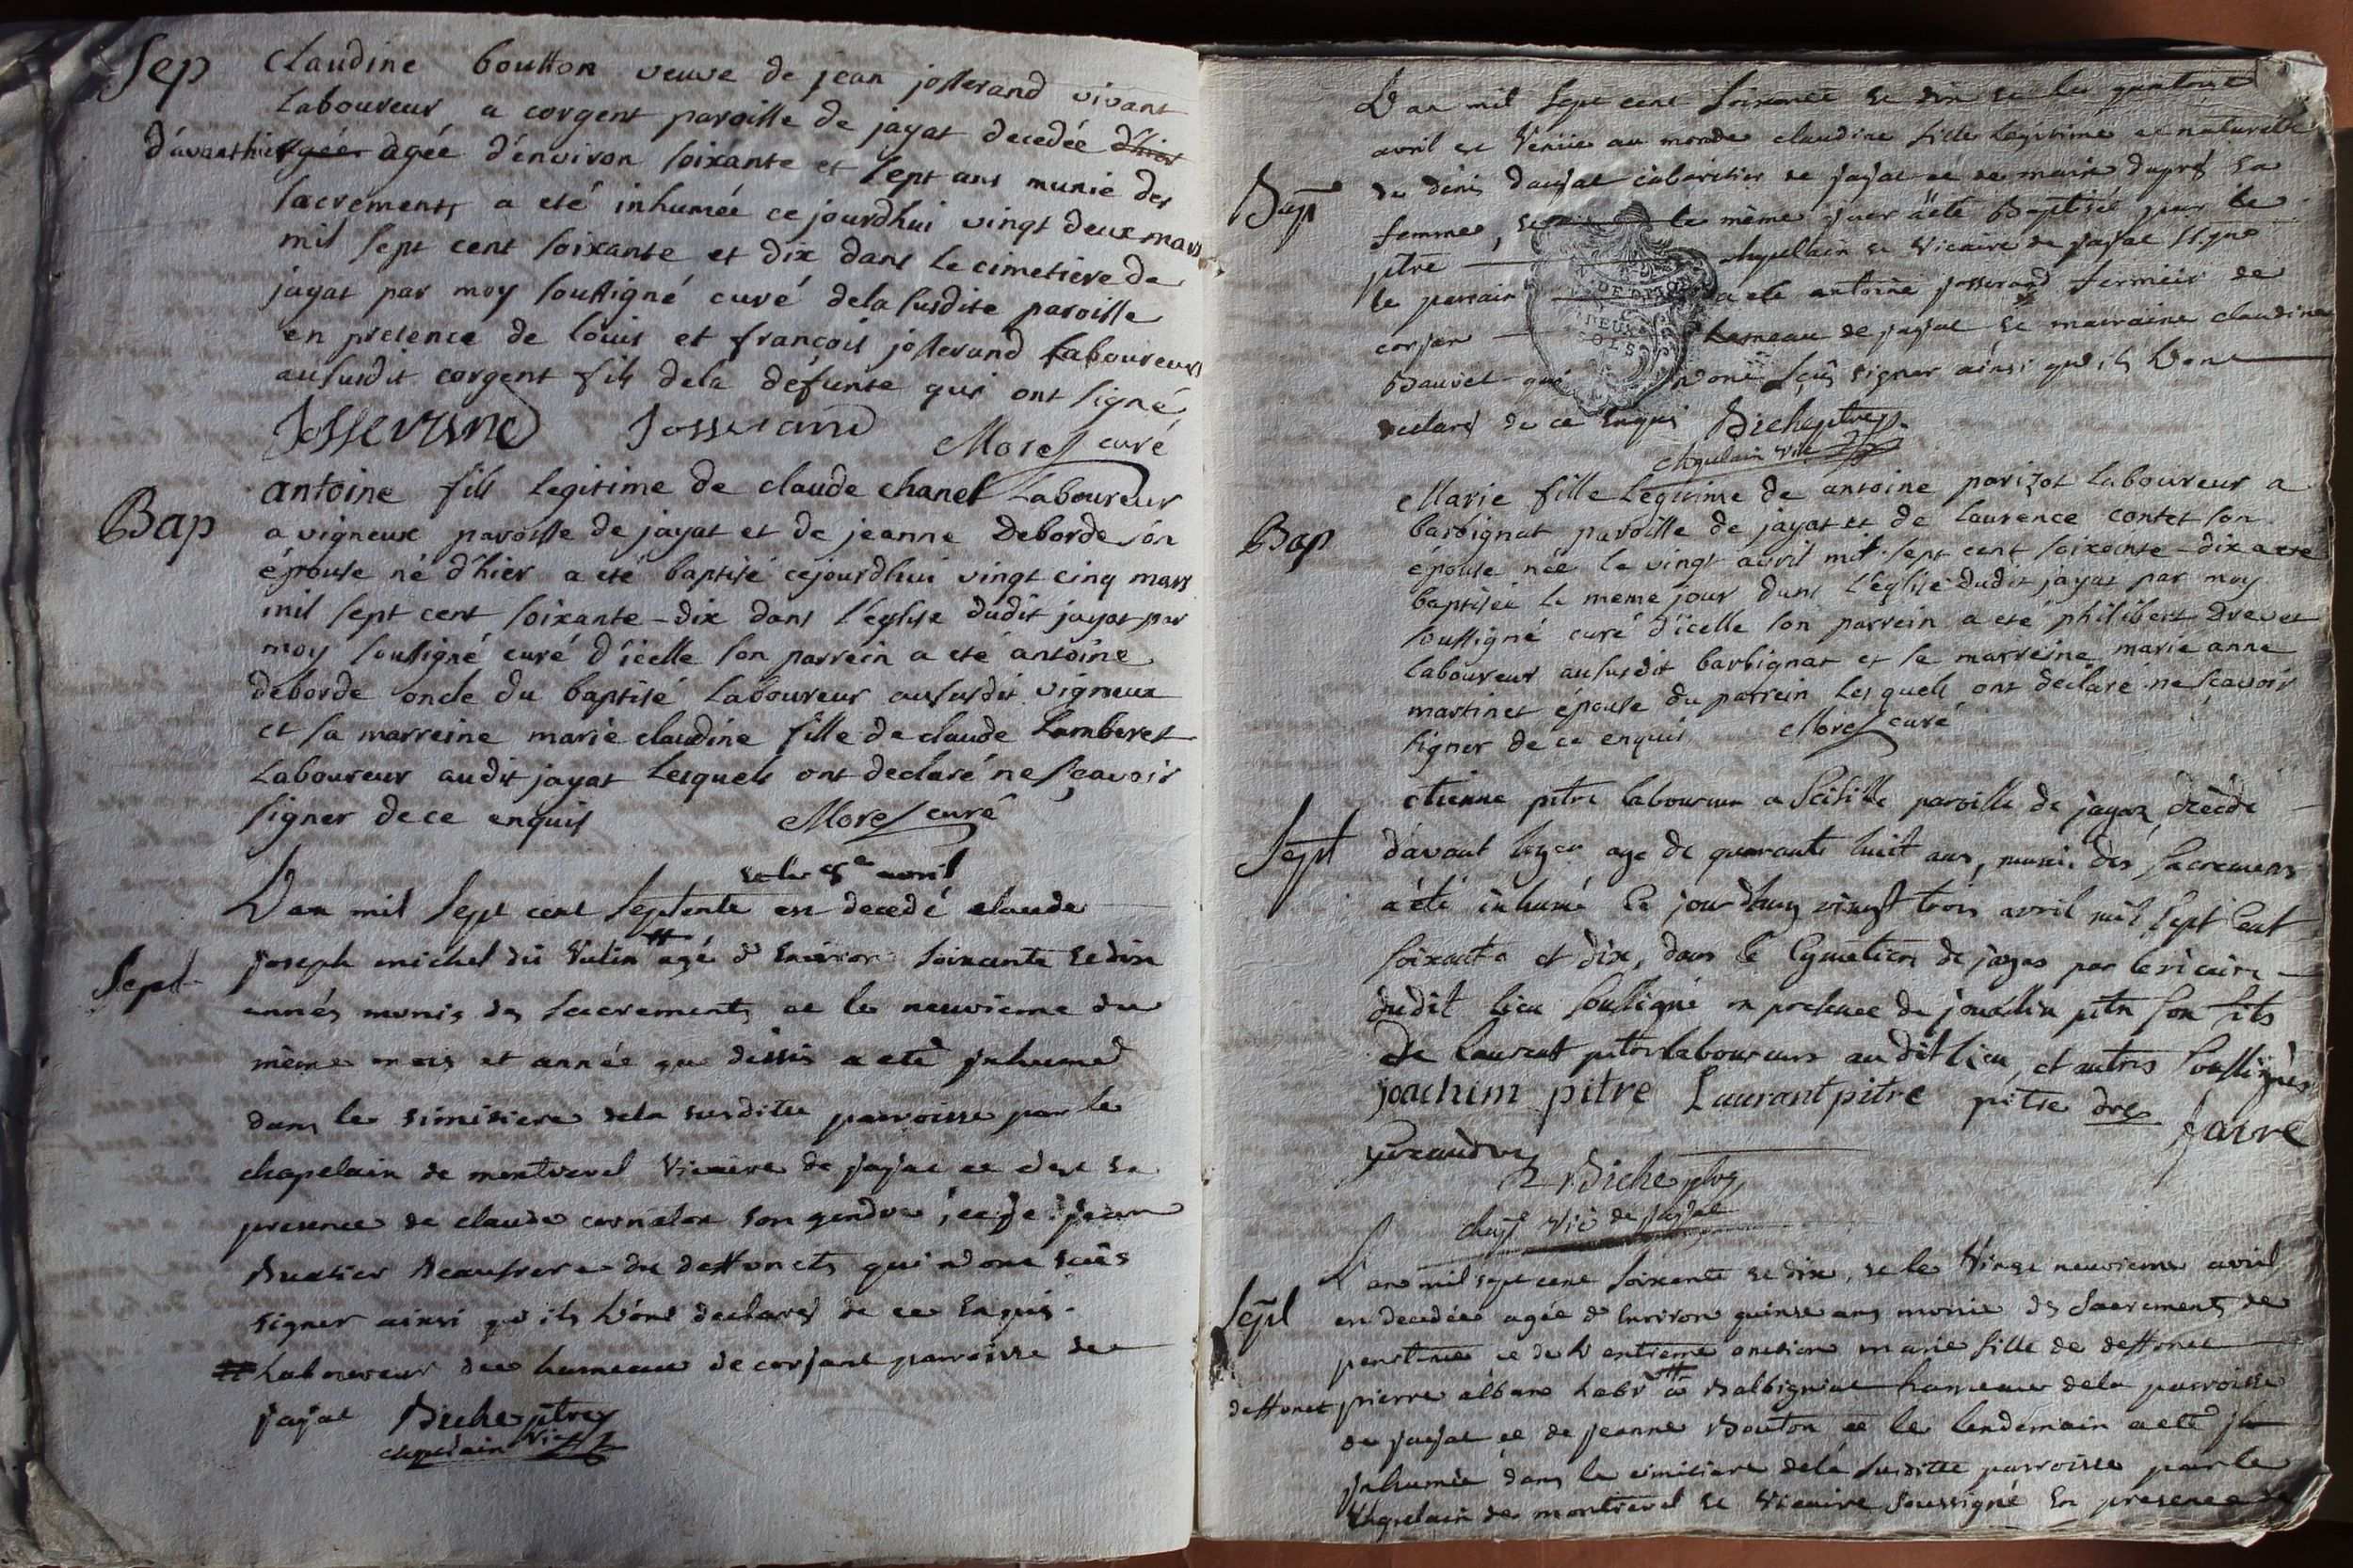 Sep
Claudine boutton veuve de jean josserand vivant
Laboureur a corgent paroisse de jayat decedée d'hier
d'avanthier agée agée d'environ soixante et sept ans munie des
sacrements a eté inhumée ce jourdhui vingt deux mars
mil sept cent soixante et dix dans le cimetiere de
jayat par moy soussigné curé dela susdite paroisse
en presence de louis et françois josserand Laboureurs
aususdit corgent fils dela défunte qui ont signé
Josserand Josserand
Morel curé
Bap
antoine fils legitime de claude chanel Laboureur
a vigneux paroisse de jayat et de jeanne Deborde son
épouse né d'hier a eté baptisé cejourdhui vingt cinq mars
mil sept cent soixante-dix dans l'eglise dudit jayat par
moy soussigné curé d'icelle son parrein a eté antoine
deborde oncle du baptisé Laboureur aususdit vigneux
et sa marreine marie claudine fille de claude Lamberet
Laboureur audit jayat Lesquels ont declaré ne sçavoir
signer de ce enquis Morel curé
et le 8e avril
L'an mil sept cent septente est decedé claude
Sept
joseph michel du agé d'environ soixante et dix
annés munis des sacrements et le neuvieme du
même mois et année que dessis a eté inhumé
dans le simitiere dela susditte parroisse par le
chapelain de montrevel Vicaire de jayat et c'est en
presence de claude son gendre, et de jean
Beaufrere du deffuncts qui n'ont sçûs
signer ainsi qu'ils L'ont declarés de ce Enquis.
Laboureur du hameau de corjant parroisse de
jayat Biche ptre
chapelain Vic
L'an mil sept cent soixante et dix et le quatorze
avril est Venüe au monde claudine fille Légitime et naturelle
Bap
de dénis cabaretier de jayat et de marie dupré sa
femme, et le même jour a été Baptisée par le
ptre chapelain et Vicaire de jayat signé
le parrain a eté antoine josserand fermier de
corjan hameau de jayat et marraine claudine
Bauvet qui n'ont sçûs signer ainsi qu'ils L'ont
declarés de ce enquis Biche ptre
chapelain Vic
Bap
Marie fille Legitime de antoine parizot Laboureur a
barbignat paroisse de jayat et de laurence contet son
épouse née le vingt avril mil sept cent soixante-dix a eté
baptisée le meme jour dans l'église dudit jayat par moy
soussigné curé d'icelle son parrein a eté philibert Drevet
Laboureur aususdit barbignat et la marreine marie anne
martinet épouse du parrein Lesquels ont declaré ne sçavoir
signer de ce enquis Morel curé
Sept
etienne pitre laboureur a paroisse de jayat, decedé
d'avant hyer age de quarante huit ans, munie des sacremens
a été inhumé Ce jourdhuy vingt trois avril mil sept Cent
soixante et dix, dans le Cymetiere de jayat par le vicaire
dudit lieu soussigné en presence de joachin pitre son fils
de laurent pitre laboureurs audit lieu, et autres soussignés
joachim pitre Laurant pitre pitre
favre
Biche ptre
chap Vic de jayat
L'an mil sept cent soixante et dix, et le Vingt neuvieme avril
Sept
est decedée agée d'environ quinse ans munie des sacrements de
penitence et de L'extreme onction marie fille de deffunct
deffunct pierre alban Labr à Balbigniat hameau dela parroisse
de jayat et de jeanne Bouton et le lendemain a eté
inhumée dans le simitiere dela susditte parroisse par le
Chapelain de montrevel et Vicaire soussigné En presence